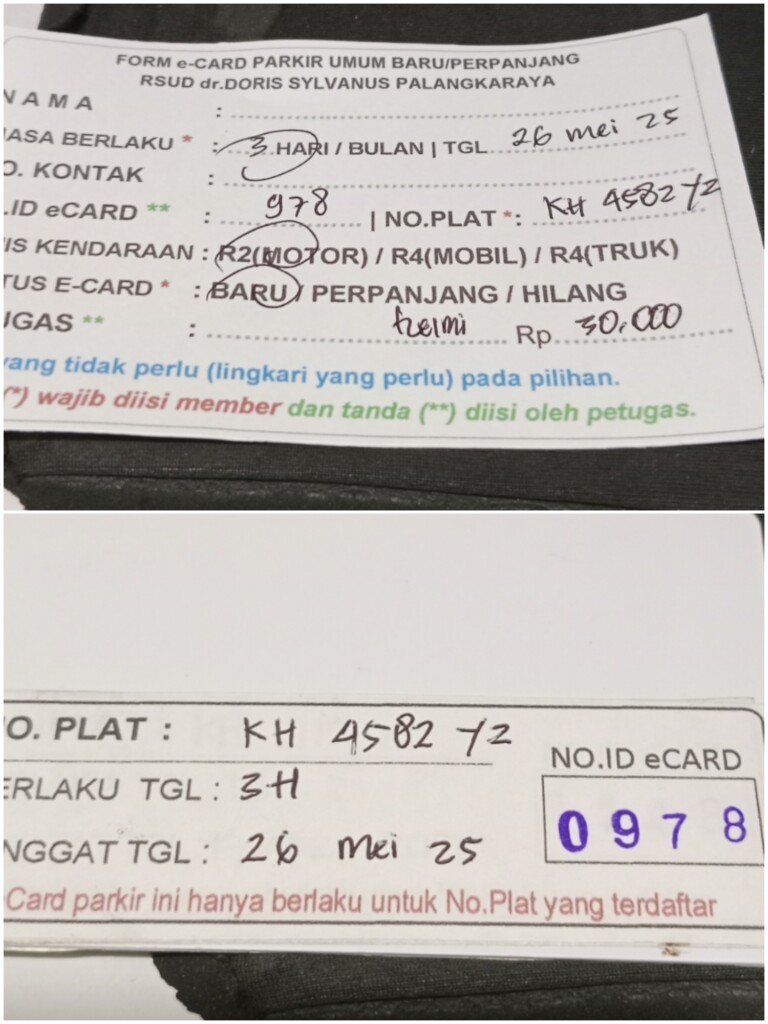 FORM e-CARD PARKIR UMUM BARU/PERPANJANG
RSUD dr.DORIS SYLVANUS PALANGKARAYA
NAMA :
ASA BERLAKU * : 3 HARI / BULAN | TGL 26 mei 25
O. KONTAK :
.ID eCARD ** : 978 | NO.PLAT *: KH 4582 YZ
IS KENDARAAN : R2(MOTOR) / R4(MOBIL) / R4(TRUK)
TUS E-CARD * : BARU / PERPANJANG / HILANG
UGAS ** : helmi Rp 30.000
ang tidak perlu (lingkari yang perlu) pada pilihan.
(*) wajib diisi member dan tanda (**) diisi oleh petugas.
O. PLAT : KH 4582 YZ
NO.ID eCARD
ERLAKU TGL : 3H
0978
NGGAT TGL : 26 mei 25
Card parkir ini hanya berlaku untuk No.Plat yang terdaftar